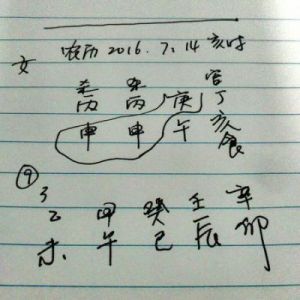 农历 2016. 7. 14 亥时
女
杀 杀 官
丙 丙 庚 丁
申 申 午 亥
食
3
乙 甲 癸 壬 辛
未 午 巳 辰 卯